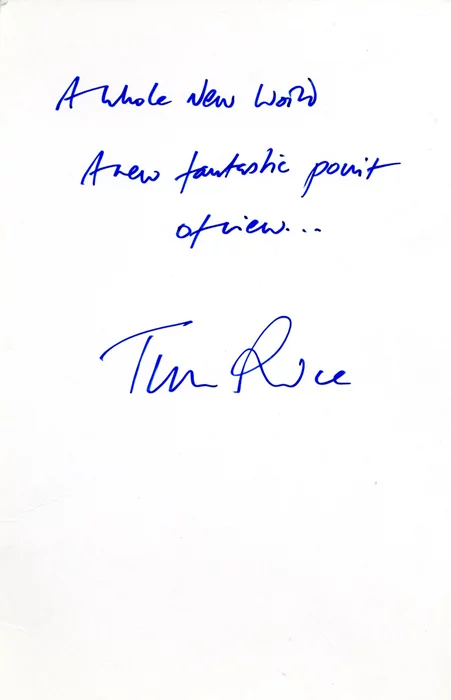 A whole New World
A new fantastic point
of view...
Tim Rice